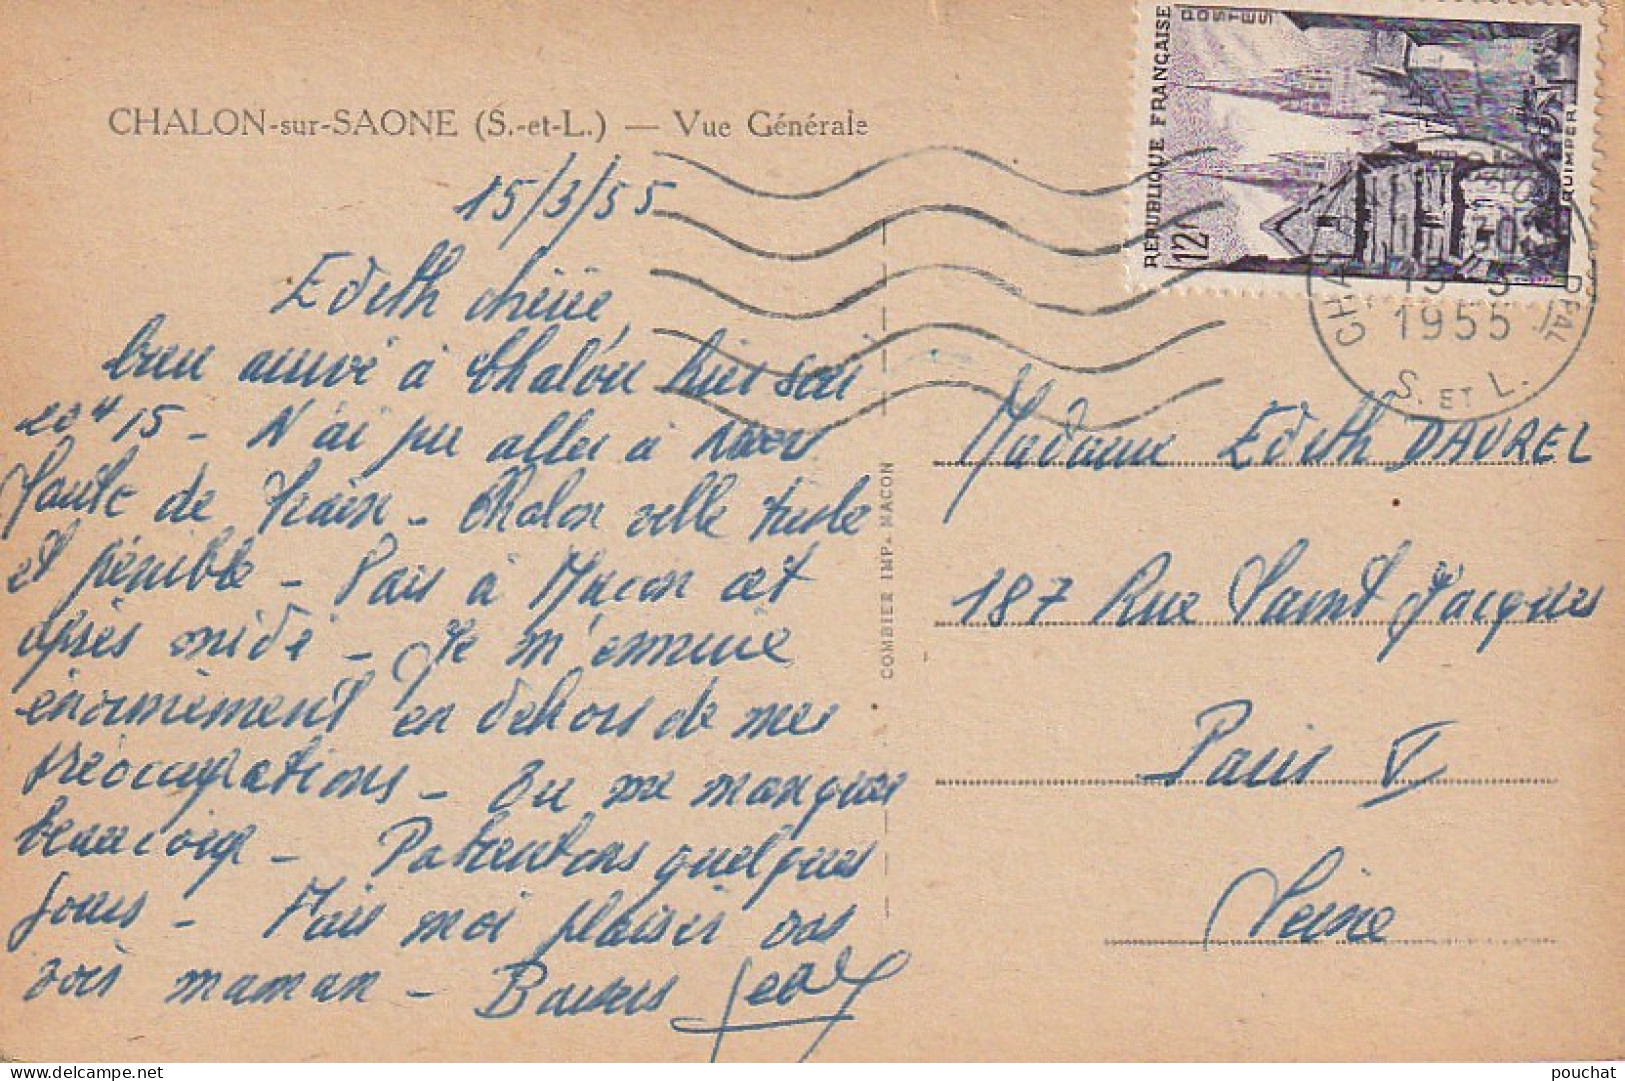 CHALON-sur-SAONE (S.-et-L.) — Vue Générale
15/3/55
Edith chérie
bien arrivé à Chalon hier soir
20 H 15 - N'ai pu aller à
faute de train - Chalon ville triste
et pénible - Pars à Macon cet
après midi - Je m'ennuie
énormément en dehors de mes
préoccupations - Tu me manques
beaucoup - Patientons quelques
jours - Fais moi plaisir vas
voir maman - Baisers Jean
COMBIER IMP. MACON
REPUBLIQUE FRANÇAISE
POSTES
12F
QUIMPER
CHALON
15 - 3
1955
S. ET L.
Madame Edith DAUREL
187 Rue Saint Jacques
Paris V
Seine
pouchat